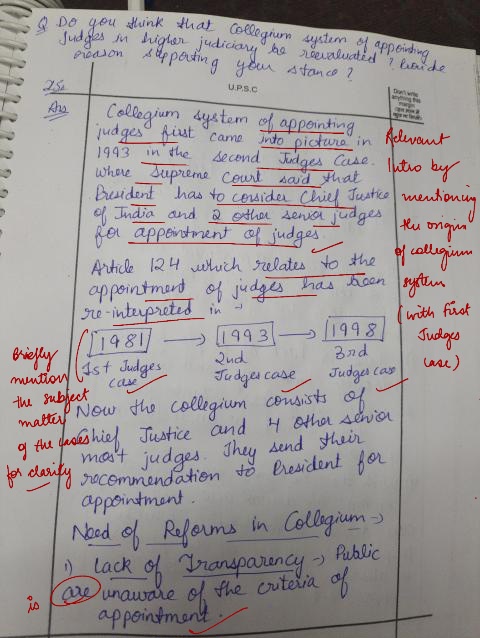 Q Do you think that Collegium system of appointing
Judges in higher judiciary be reevaluated? Provide
reason supporting your stance?
U.P.S.C
Don't write
anything this
margin
Ans
Collegium system of appointing
judges first came into picture in
1993 in the second Judges Case.
where Supreme Court said that
President has to consider Chief Justice
of India and 2 other senior judges
for appointment of judges.
Relevant
Intro by
mentioning
the origin
of collegium
system
(with first
Judges
case)
Article 124 which relates to the
appointment of judges has been
re-interpreted in →
1981 → 1993 → 1998
1st Judges case
2nd Judges case
3rd Judges case
Briefly
mention
the subject
matter
of the cases
for clarity
Now the collegium consists of
Chief Justice and 4 other senior
most judges. They send their
recommendation to President for
appointment.
Need of Reforms in Collegium →
1) Lack of Transparency → Public
are unaware of the criteria of
is
appointment.